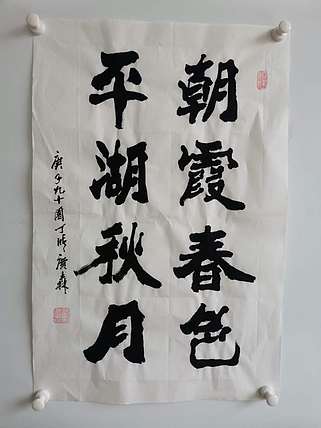 朝霞春色
平湖秋月
庚子九十国丁晓广森